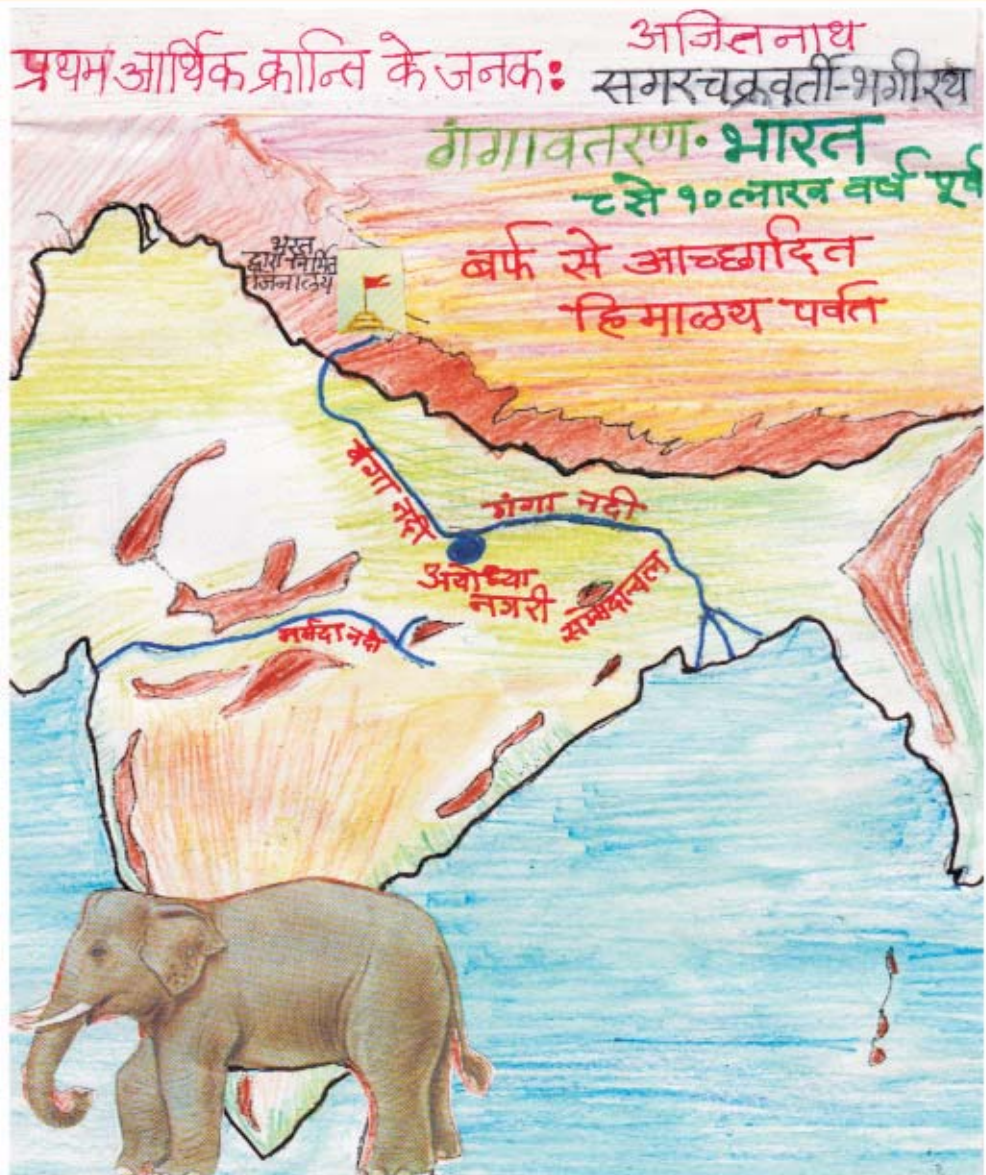 प्रथम आर्थिक क्रान्ति के जनक:
अजितनाथ
सगरचक्रवर्ती-भगीरथ
गंगावतरण· भारत
८ से १० लाख वर्ष पूर्व
बर्फ से आच्छादित
हिमाळय पर्वत
भरत
द्वारा निर्मित
जिनालय
गंगा नदी
गंगा नदी
अयोध्या
नगरी
सम्मेदाचल
नर्मदा नदी